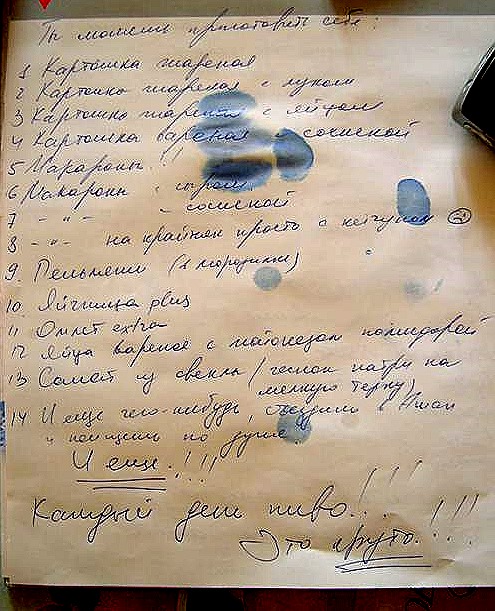 Ты можешь приготовить себе:
1 Картошка жареная
2 Картошка жареная с луком
3 Картошка жареная с яйцом
4 Картошка вареная сосиской
5 Макароны!!
6 Макароны с сыром
7 - " - - сосиской
8 - " - на крайняк просто с кетчупом
9. Пельмени (в морозилке)
10. Яйчница plus
11 Омлет extra
12 Яйца вареное с майонезом помидорой
13 Салат из свеклы (чеснок натри на
мелкую терку)
14 И еще чего-нибудь, сходишь в
и поищешь по душе.
И еще!!!!
Каждый день пиво...!!!
Это круто...!!!